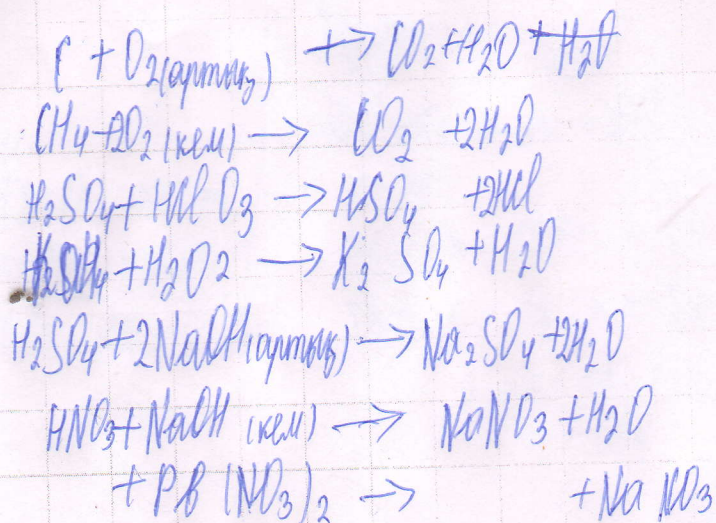 C + O₂(артық) +→ CO₂+H₂O + H₂O
CH₄+2O₂(кем) → CO₂ +2H₂O
H₂SO₄+HClO₃ → HSO₄ +2HCl
+H₂O₂ → K₂SO₄ +H₂O
H₂SO₄+2NaOH(артық) → Na₂SO₄+2H₂O
HNO₃+NaOH (кем) → NaNO₃+H₂O
+Pb(NO₃)₂ → +NaNO₃